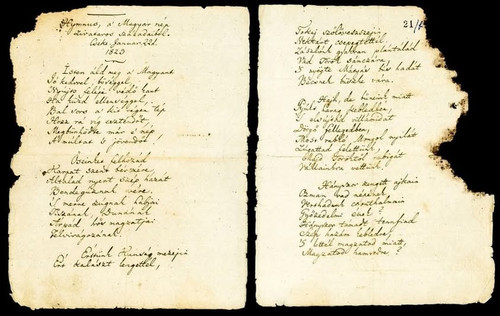 Hymnus, a' Magyar nép
zivataros századaiból.
Cseke, Januar. 22d.
1823
Isten áldd meg a' Magyart
Jó kedvvel, bőséggel,
Nyújts feléje védő kart
Ha küzd ellenséggel,
Bal sors a' kit régen tép
Hozz rá víg esztendőt,
Megbűnhődte már e' nép
A' multat 's jövendőt,
Őseinket felhozád
Kárpát szent bérczére,
Általad nyert szép hazát
Bendegúznak vére,
'S merre zúgnak habjai
Tiszának, Dunának
Árpád hős magzatjai
Felvirágozának.
Értünk Kunság mezejin
Ért kalászt lengettél,
21/
Tokaj szőlővesszejin
Nektárt csepegtettél,
Zászlónk gyakran plántálád
Vad török sánczára,
'S nyögte Mátyás bús hadát
Bécsnek büszke vára.
Hajh, de bűneink miatt
Gyúlt harag kebledben,
'S elsújtád villámidat
Dörgő fellegedben,
Most rabló Mongol nyilát
Zúgattad felettünk,
Majd Töröktől rabigát
Vállainkra vettünk.
Hányszor zengett ajkain
Ozman vad népének,
Vert hadunk csonthalmain
Győzedelmi ének!
Hányszor támadt tenfiad
Szép hazám kebledre,
'S lettél magzatod miatt,
Magzatod hamvvedre?